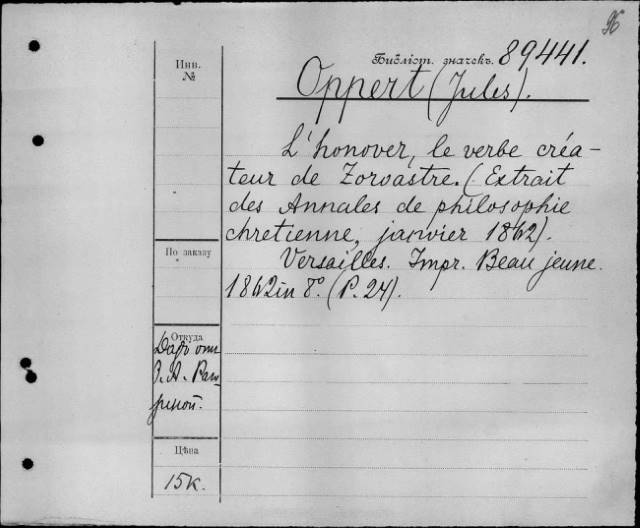 96
Инв.
№
Бібліот. значекъ. 89441.
Oppert (Jules).
L'honover, le verbe créa-
teur de Zoroastre. (Extrait
des Annales de philosophie
chretienne, janvier 1862).
Versailles. Impr. Beau jeune.
1862 in 8°. (P. 24).
По заказу
Откуда
Даръ отъ
Цѣна
15 к.